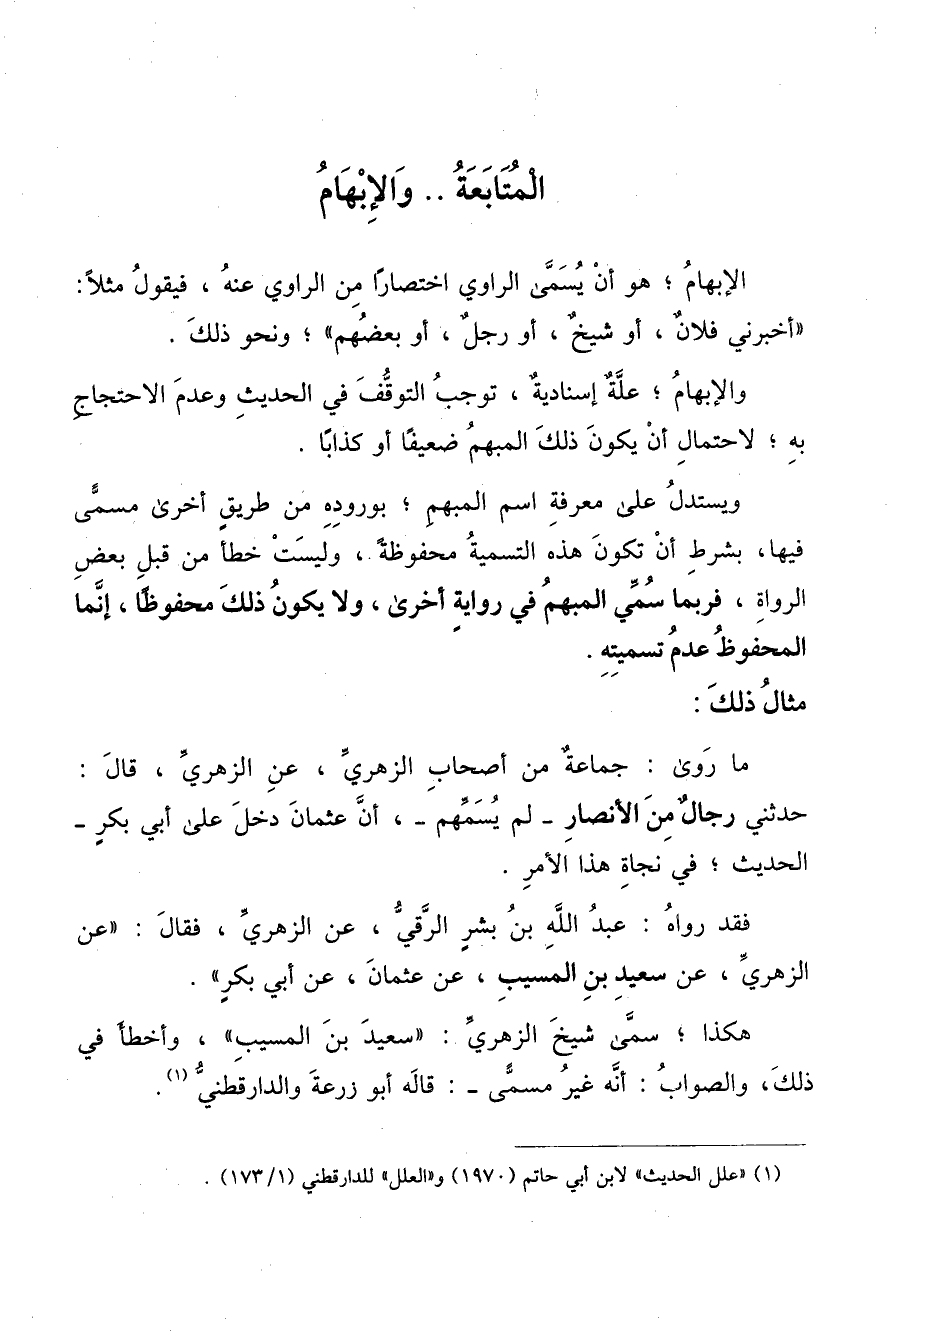 الْمُتَابَعَةُ .. وَالإِبْهَامُ
الإبهامُ ؛ هو أنْ يُسَمَّى الراوي اختصارًا مِن الراوي عنهُ ، فيقولُ مثلاً:
«أخبرني فلانٌ ، أو شيخٌ ، أو رجلٌ ، أو بعضُهم» ؛ ونحو ذلكَ .
والإبهامُ ؛ علَّةٌ إسناديةٌ ، توجبُ التوقُّفَ في الحديثِ وعدمَ الاحتجاجِ
بهِ ؛ لاحتمالِ أنْ يكونَ ذلكَ المبهمُ ضعيفًا أو كذابًا .
ويستدلُ علىٰ معرفةِ اسم المبهمِ ؛ بورودِهِ من طريقٍ أخرىٰ مسمًّى
فيها، بشرطِ أنْ تكونَ هذه التسميةُ محفوظةً ، وليستْ خطأً من قبلِ بعضِ
الرواةِ ، فربما سُمِّي المبهمُ في روايةٍ أخرىٰ ، ولا يكونُ ذلكَ محفوظًا ، إنَّما
المحفوظُ عدمُ تسميتِهِ .
مثالُ ذلكَ :
ما رَوىٰ : جماعةٌ من أصحابِ الزهريِّ ، عنِ الزهريِّ ، قالَ :
حدثني رجالٌ مِنَ الأنصارِ ـ لم يُسَمِّهم ـ ، أنَّ عثمانَ دخلَ علىٰ أبي بكرٍ ـ
الحديث ؛ في نجاةِ هذا الأمرِ .
فقد رواهُ : عبدُ اللَّهِ بنُ بشرٍ الرَّقيُّ ، عن الزهريِّ ، فقالَ : «عن
الزهريِّ ، عن سعيدِ بنِ المسيبِ ، عن عثمانَ ، عن أبي بكرٍ» .
هكذا ؛ سمَّىٰ شيخَ الزهريِّ : «سعيدَ بنَ المسيبِ» ، وأخطأَ في
ذلكَ، والصوابُ : أنَّه غيرُ مسمًّى ـ : قالَه أبو زرعةَ والدارقطنيُّ (١).
(١) «علل الحديث» لابن أبي حاتم (١٩٧٠) و«العلل» للدارقطني (١/ ١٧٣) .